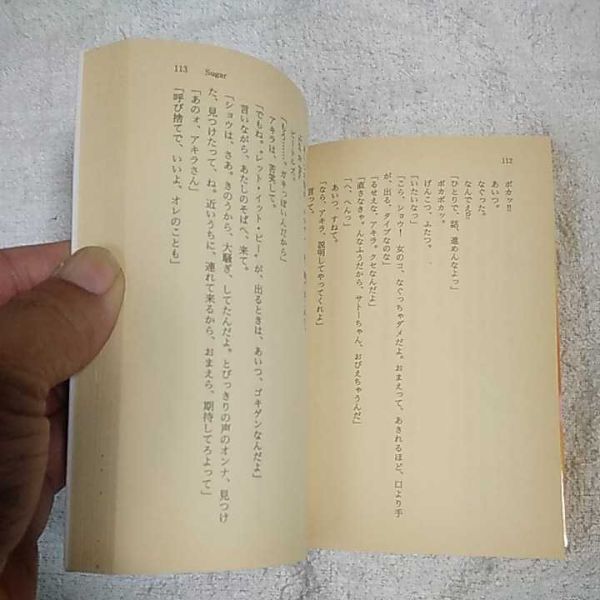 112
ポカッ!!
あいつ。
なぐった。
なんでェ!?
「ひとりで、話、進めんなよっ」
ポカポカッ。
げんこつ、ふたつ。
「いたいなっ」
「こら、ショウ! 女のコ、なぐっちゃダメだよ。おまえって、あきれるほど、口より手
が、出る、タイプなのな」
「るせえな、アキラ。クセなんだよ」
「直さなきゃ。んなふうだから、サトーちゃん、おびえちゃうんだ」
「へ、へんっ」
あいつ、すねて。
「なら、アキラ、説明してやってくれよ」
言って。
113 Sugar
ビートルズ。
「もう……、ガキっぽいんだから」
アキラは、苦笑して。
「でもね。“レット・イット・ビー”が、出るときは、あいつ、ゴキゲンなんだよ」
言いながら、あたしのそばへ、来て。
「ショウは、さあ。きのうから、大騒ぎ、してたんだよ。とびっきりの声のオンナ、見つけ
た、見つけたって、ね。近いうちに、連れて来るから、おまえら、期待してろよって」
「あのォ、アキラさん」
「呼び捨てで、いいよ、オレのことも」